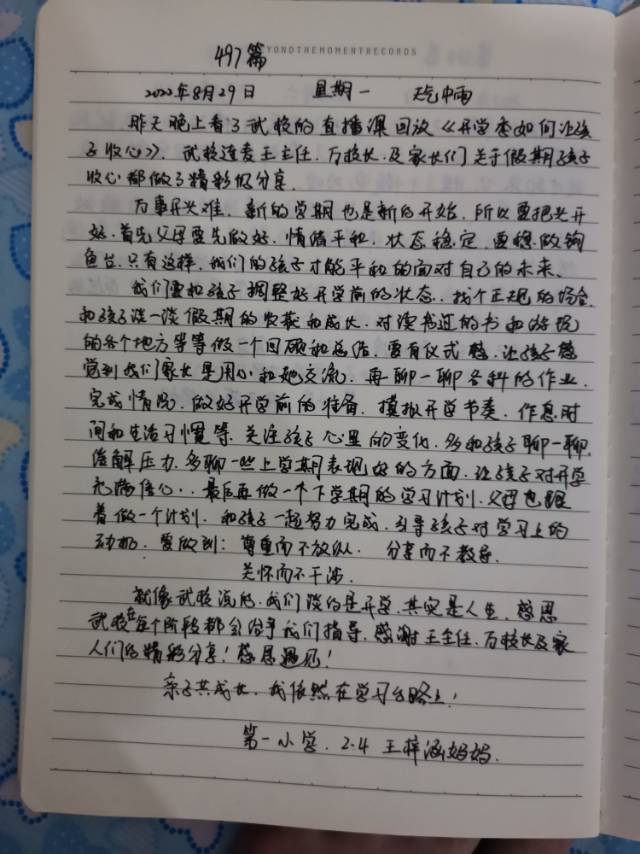 YONDTHEMOMENTRECORDS
497篇
2022年8月29日 星期一 天气中雨
昨天晚上看了武校的直播课回放《开学季如何让孩
子收心》。武校连麦王主任、万校长、及家长们关于假期孩子
收心都做了精彩的分享。
万事开头难，新的学期也是新的开始，所以要把头开
好。首先父母要先做好，情绪平和，状态稳定，要稳做钓
鱼台。只有这样，我们的孩子才能平和的面对自己的未来。
我们要和孩子调整好开学前的状态，找个正规的场合，
和孩子谈一谈假期的收获和成长，对读书过的书和游玩
的各个地方等等做一个回顾和总结，要有仪式感，让孩子感
觉到我们家长是用心和她交流，再聊一聊各科的作业，
完成情况，做好开学前的准备，模拟开学节奏，作息时
间和生活习惯等，关注孩子心里的变化，多和孩子聊一聊，
缓解压力，多聊一些上学期表现好的方面，让孩子对开学
充满信心.. 最后再做一个下学期的学习计划，父母也跟
着做一个计划，和孩子一起努力完成，引导孩子对学习上的
动机，要做到：尊重而不放纵，分享而不教导，
关怀而不干涉，
就像武校说的，我们谈的是开学，其实是人生，感恩
武校在每个阶段都会给予我们指导，感谢王主任、万校长及家
人们的精彩分享！感恩遇见！
亲子共成长，我依然在学习的路上！
第一小学，2.4 王梓涵妈妈.